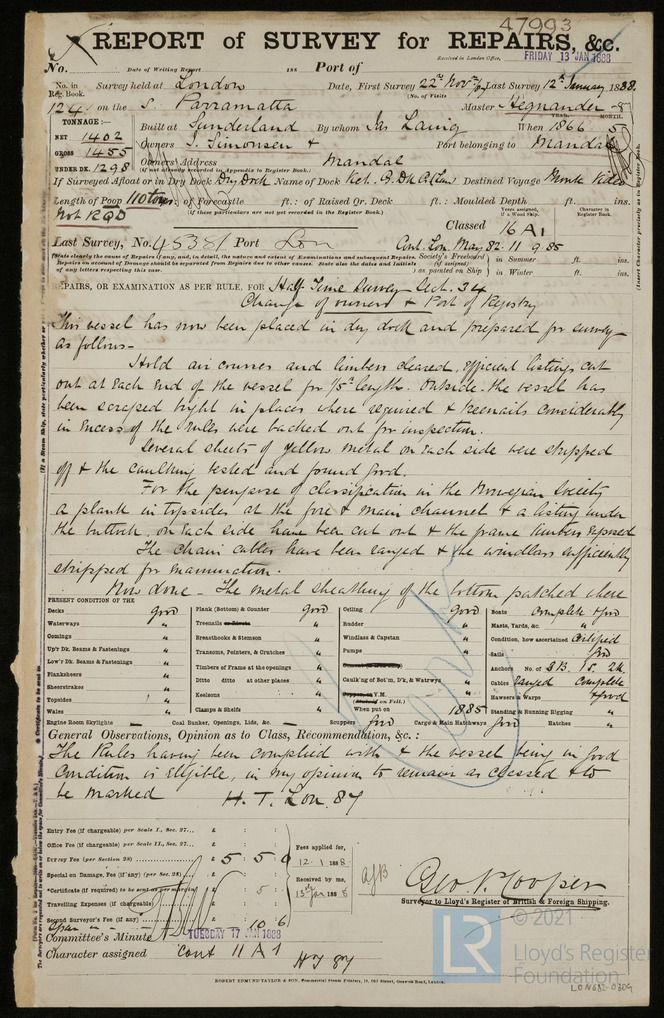 47993
REPORT of SURVEY for REPAIRS, &c.
Received in London Office, FRIDAY 13 JAN 1888
No. Date of Writing Report 188 Port of
No. in Reg. Book. Survey held at London Date, First Survey 22nd Nov 87 Last Survey 12th January 1888.
(No. of Visits
124 on the S. Parramatta Master Hegnander -8
TONNAGE:— YEAR. MONTH.
NET 1402 Built at Sunderland By whom Jas Laing When 1866
GROSS 1455 Owners S. Simonsen + Port belonging to Mandal
UNDER DK. 1298 Owners' Address Mandal
(if not already recorded in Appendix to Register Book.)
If Surveyed Afloat or in Dry Dock Dry Dock Name of Dock Destined Voyage Monte Video
Length of Poop 110 of Forecastle ft.: of Raised Qr. Deck ft.: Moulded Depth ft.
(if these particulars are not yet recorded in the Register Book.)
Not RQD
Years assigned, if a Wood Ship. Character in Register Book.
Classed 16 A1
Last Survey, No. 45381 Port Lon Cont. Lon. May 82 . 11 9.85
Society's Freeboard (if assigned) as painted on Ship in Summer ft. in.
in Winter ft. in.
REPAIRS, OR EXAMINATION AS PER RULE, FOR Half Time Survey Sect. 34
Change of owners + Port of Registry
This vessel has now been placed in dry dock and prepared for survey
as follows—
Hold air courses and limbers cleared, efficient listings cut
out at each end of the vessel for 1/5th length. Outside the vessel has
been scraped bright in places where required + treenails considerably
in excess of the rules were backed out for inspection.
Several sheets of yellow metal on each side were stripped
off + the caulking tested and found good.
For the purpose of classification in the Norwegian Society
a plank in topsides at the fore + main channel + a listing under
the buttock, on each side have been cut out + the frame timbers exposed
The chain cables have been ranged + the windlass sufficiently
stripped for examination.
Now done — The metal sheathing of the bottom patched where
PRESENT CONDITION OF THE
Decks good
Waterways "
Comings "
Up'r Dk. Beams & Fastenings "
Low'r Dk. Beams & Fastenings "
Planksheers "
Sheerstrakes "
Topsides "
Wales "
Plank (Bottom) & Counter good
Treenails "
Breasthooks & Stemson "
Transoms, Pointers, & Crutches "
Timbers of Frame at the openings "
Ditto ditto at other places "
Keelsons "
Clamps & Shelfs "
Ceiling good
Rudder "
Windlass & Capstan "
Pumps "
Caulk'ng of Bot'm, D'k, & Watrwys "
Y.M. "
When put on 1885
Boats complete + good
Masts, Yards, &c. "
Condition, how ascertained
Sails good
Anchors No. of 3 B. 1 S. 2 K.
Cables ranged complete
Hawsers & Warps + good
Standing & Running Rigging "
Engine Room Skylights — Coal Bunker, Openings, Lids, &c. — Scuppers good Cargo & Main Hatchways good Hatches "
General Observations, Opinion as to Class, Recommendation, &c.:
The Rules having been complied with + the vessel being in good
condition is eligible, in my opinion to remain as classed + to
be marked H. T. Lon. 87
Entry Fee (if chargeable) per Scale I., Sec. 27... £
Office Fee (if chargeable) per Scale II., Sec. 27... £
Survey Fee (per Section 28) £ 5 5 0
Special on Damage, Fee (if any) (per Sec. 28) £
*Certificate (if required) to be sent as per margin 5
Travelling Expenses (if chargeable) £
Second Surveyor's Fee (if any) £ 10 6
Fees applied for, 12.1.1888.
Received by me, 13th Jan 1888
AJB
Geo. P. Cooper
Surveyor to Lloyd's Register of British & Foreign Shipping.
Committee's Minute TUESDAY 17 JAN 1888
Character assigned Cont 11 A 1
H T 87
ROBERT EDMUND TAYLOR & SON, Commercial Steam Printers, 19, Old Street, Goswell Road, London.
© 2021
LR Lloyd's Register Foundation
LON682-0309